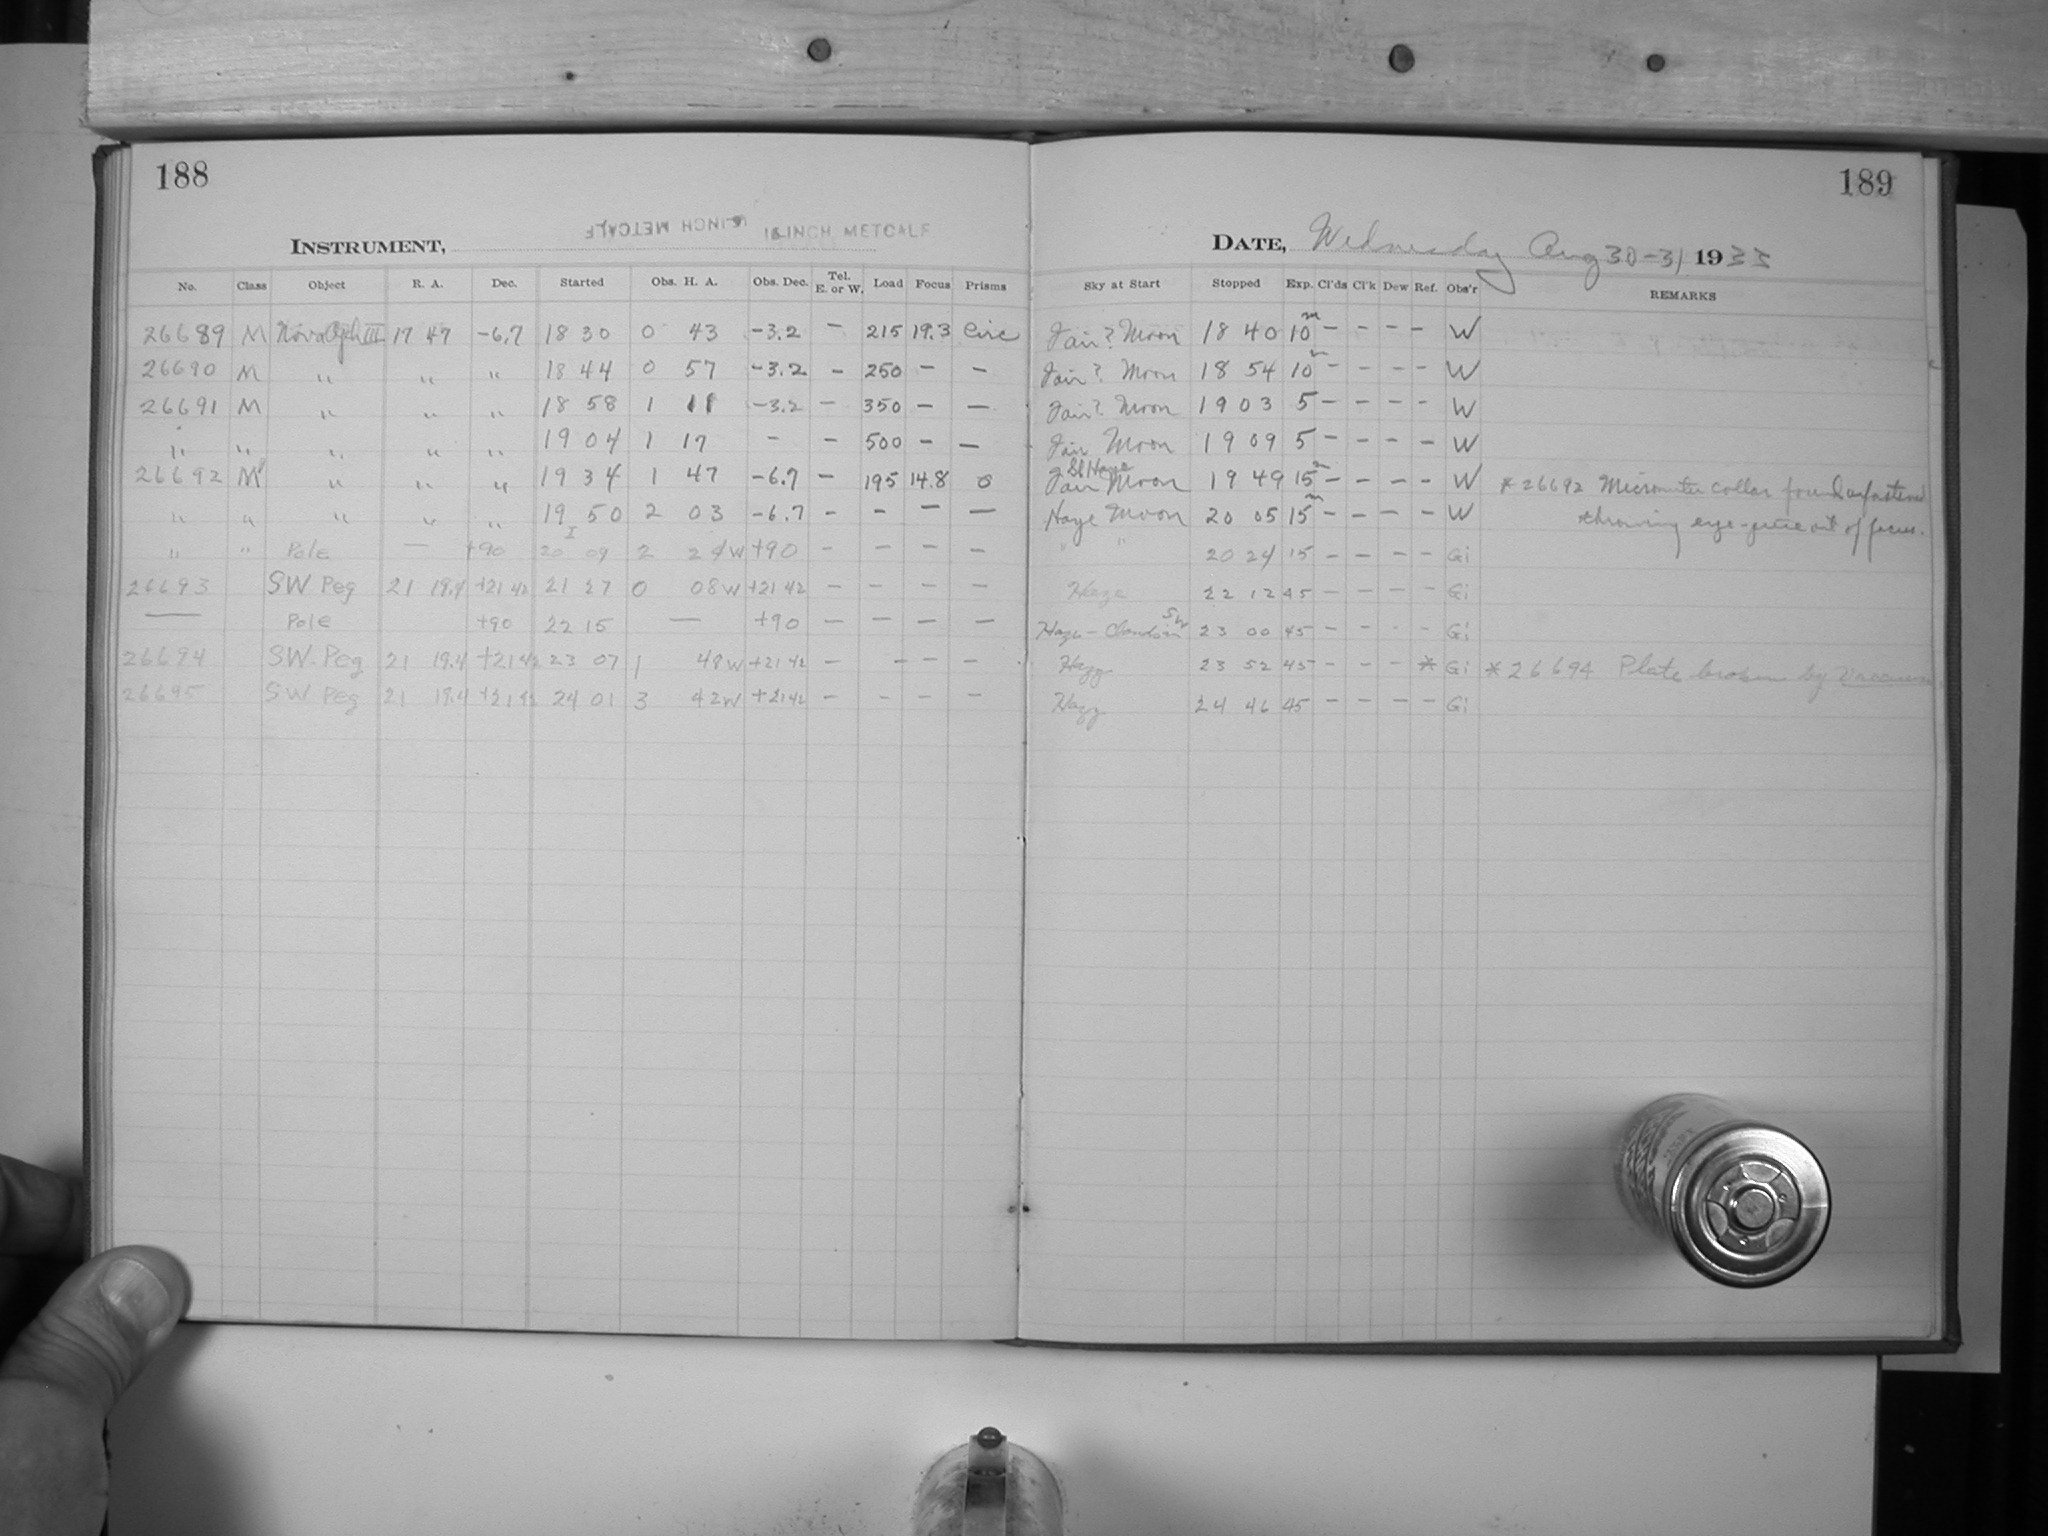 188
INSTRUMENT, 16 INCH METCALF 16 INCH METCALF
No. Class Object R. A. Dec. Started Obs. H. A. Obs. Dec. Tel. E. or W. Load Focus Prisms
26689 M Nova Oph III 17 47 -6.7 18 30 0 43 -3.2 - 215 19.3 Circ
26690 M " " " 18 44 0 57 -3.2 - 250 - -
26691 M " " " 18 58 1 11 -3.2 - 350 - -
" " " " " 19 04 1 17 - - 500 - -
26692 M " " " 19 34 1 47 -6.7 - 195 14.8 0
" " " " " 19 50 2 03 -6.7 - - - -
" " Pole - +90 20 09 2 24W +90 - - - -
26693 SW Peg 21 19.4 +21 42 21 27 0 08W +21 42 - - - -
— Pole +90 22 15 — +90 - - - -
26694 SW Peg 21 19.4 +21 42 23 07 1 48W +21 42 - - - -
26695 SW Peg 21 19.4 +21 42 24 01 3 42W +21 42 - - - -
189
DATE, Wednesday Aug 30-31 1933
Sky at Start Stopped Exp. Cl'ds Cl'k Dew Ref. Obs'r REMARKS
Fair? Moon 18 40 10m - - - - W
Fair? Moon 18 54 10m - - - - W
Fair? Moon 19 03 5 - - - - W
Fair Moon 19 09 5 - - - - W
Sl Haze
Fair Moon 19 49 15m - - - - W * 26692 Micrometer collar found unfastened
Haze Moon 20 05 15m - - - - W throwing eye-piece out of focus.
" " 20 24 15 - - - - Gi
Haze 22 12 45 - - - - Gi
Haze - Clouds in SW 23 00 45 - - - - Gi
Hazy 23 52 45 - - - * Gi * 26694 Plate broken by Vacuum
Hazy 24 46 45 - - - - Gi